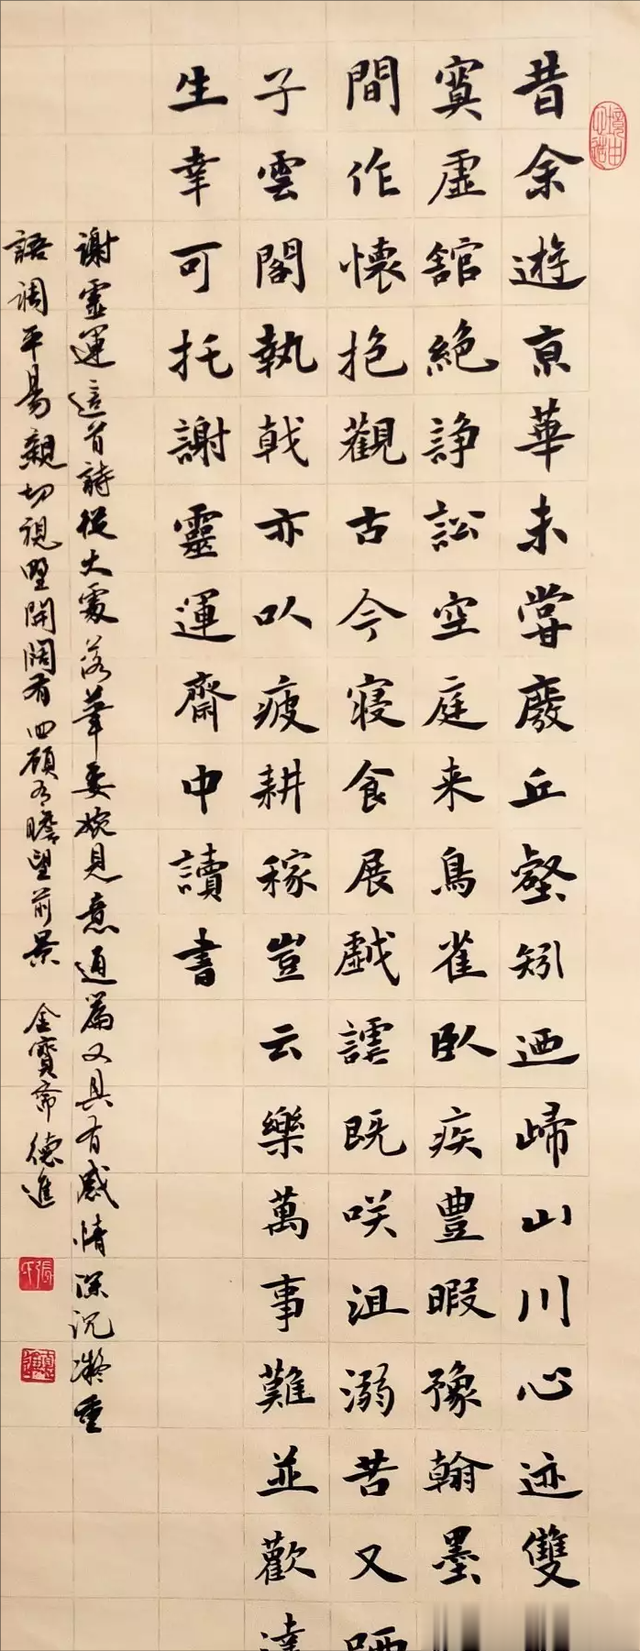 境由心造
昔余遊亰華未甞廢丘壑矧迺歸山川心迹雙
寞虛舘絶諍訟空庭来鳥雀臥疾豊暇豫翰墨
間作懷抱觀古今寢食展戯謔既咲沮溺苦又哂
子雲閣執戟亦以疲耕稼豈云樂萬事難並歡達
生幸可托謝靈運齋中讀書
謝靈運這首詩從大處落筆委婉見意通篇又具有感情深沉凝重
語调平易親切視野開闊有四顾瞻望前景 金寶齋德進
張氏